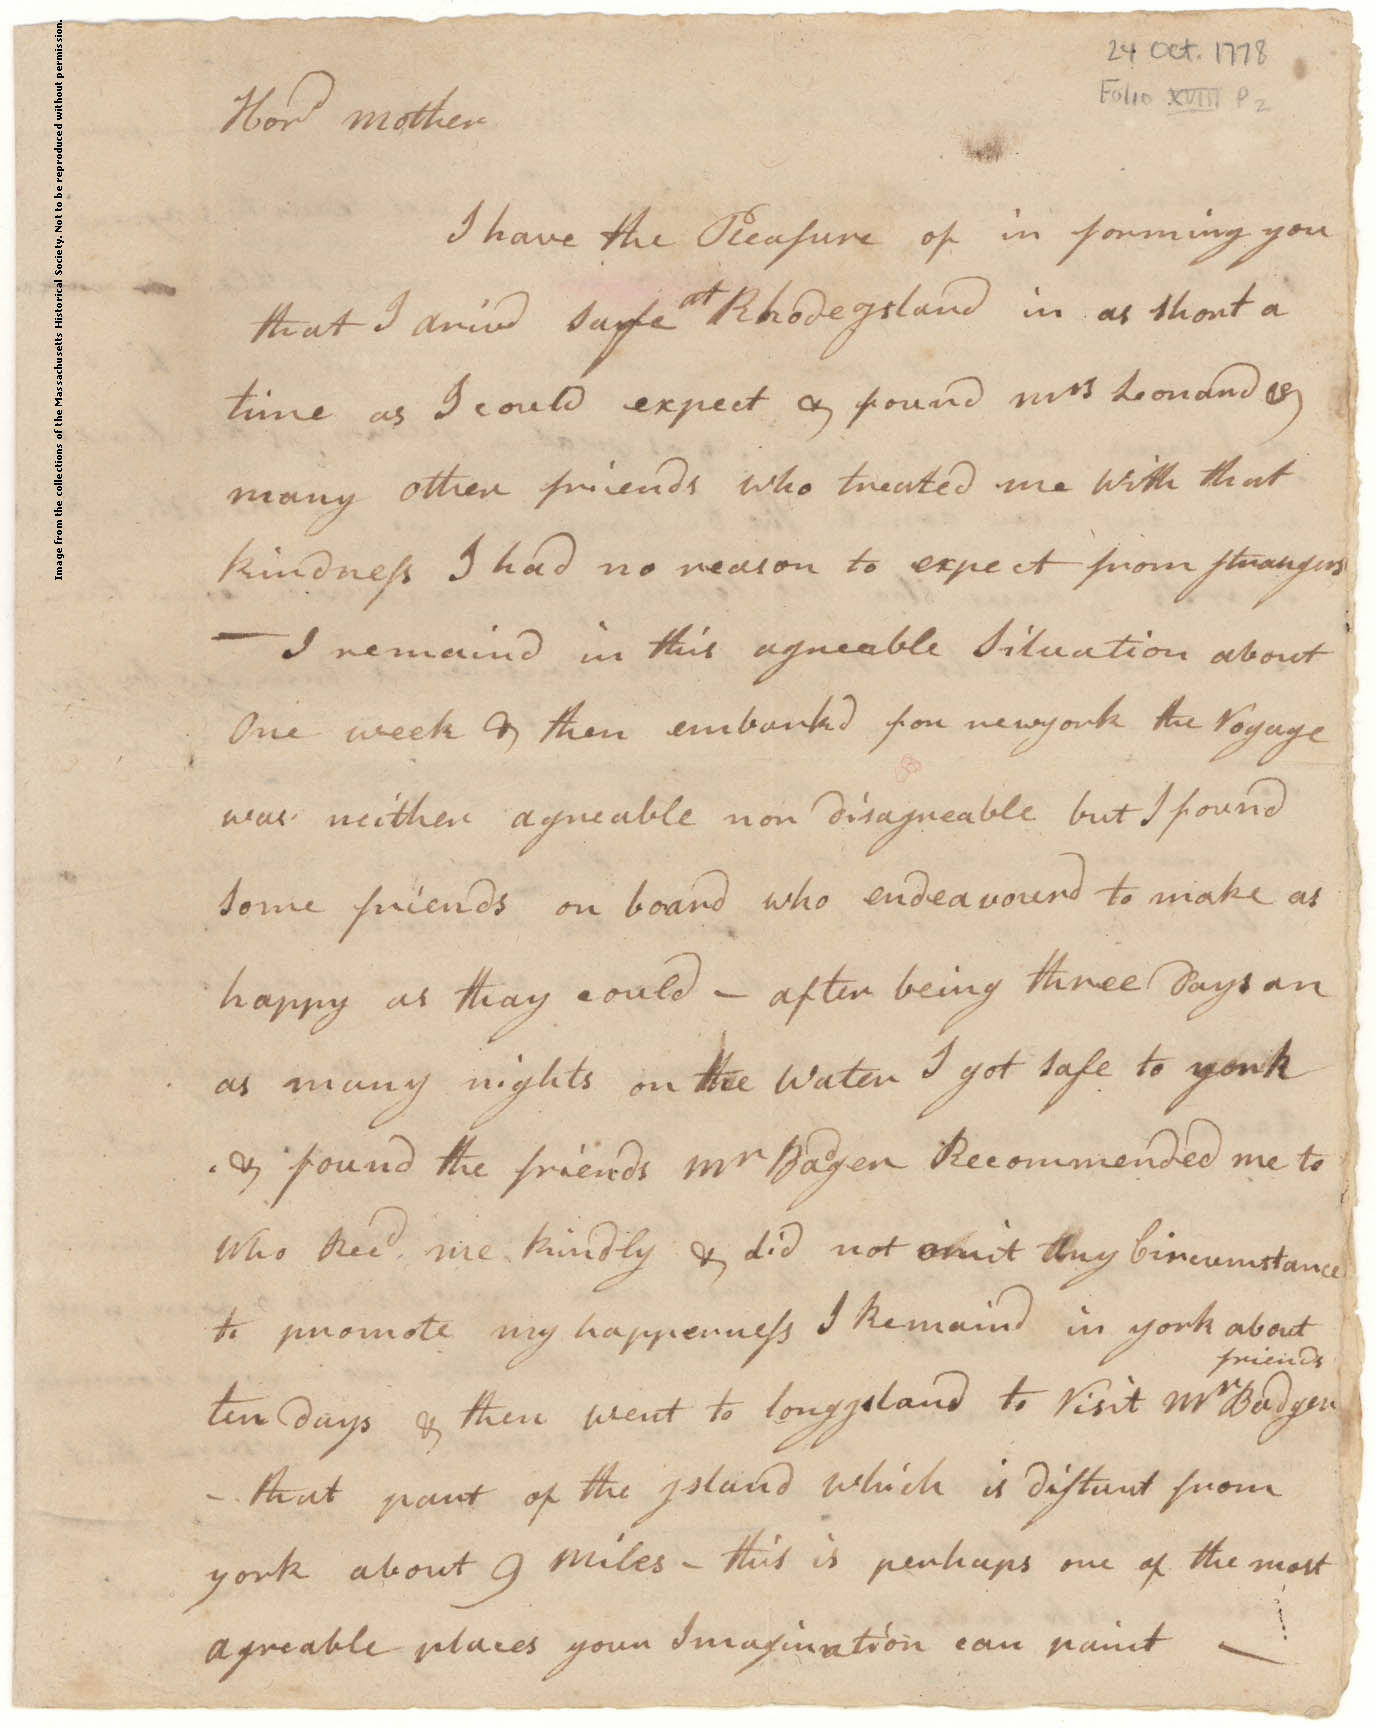 24 Oct. 1778
Folio XVIII P 2
Hond mother
I have the Pleasure of in forming you
that I arivd safe at Rhodeysland in as short a
time as I could expect & found mrs Leonard &
many other friends who treated me with that
kindness I had no reason to expect from strangers
— I remaind in this agreable Situation about
One week & then embarkd for newyork the Voyage
was neither agreable nor disagreable but I found
some friends on board who endeavourd to make as
happy as thay could – after being three Days an
as many nights on the Water I got safe to york
& found the friends Mr Badger Recommended me to
Who Recd me kindly & did not omit any Circumstance
to promote my happerness I Remaind in york about
friends
ten days & then went to longysland to Visit Mr Badger
– that part of the ysland which is distant from
york about 9 Miles – this is perhaps one of the most
agreable places your Imagination can paint —
Image from the collections of the Massachusetts Historical Society. Not to be reproduced without permission.